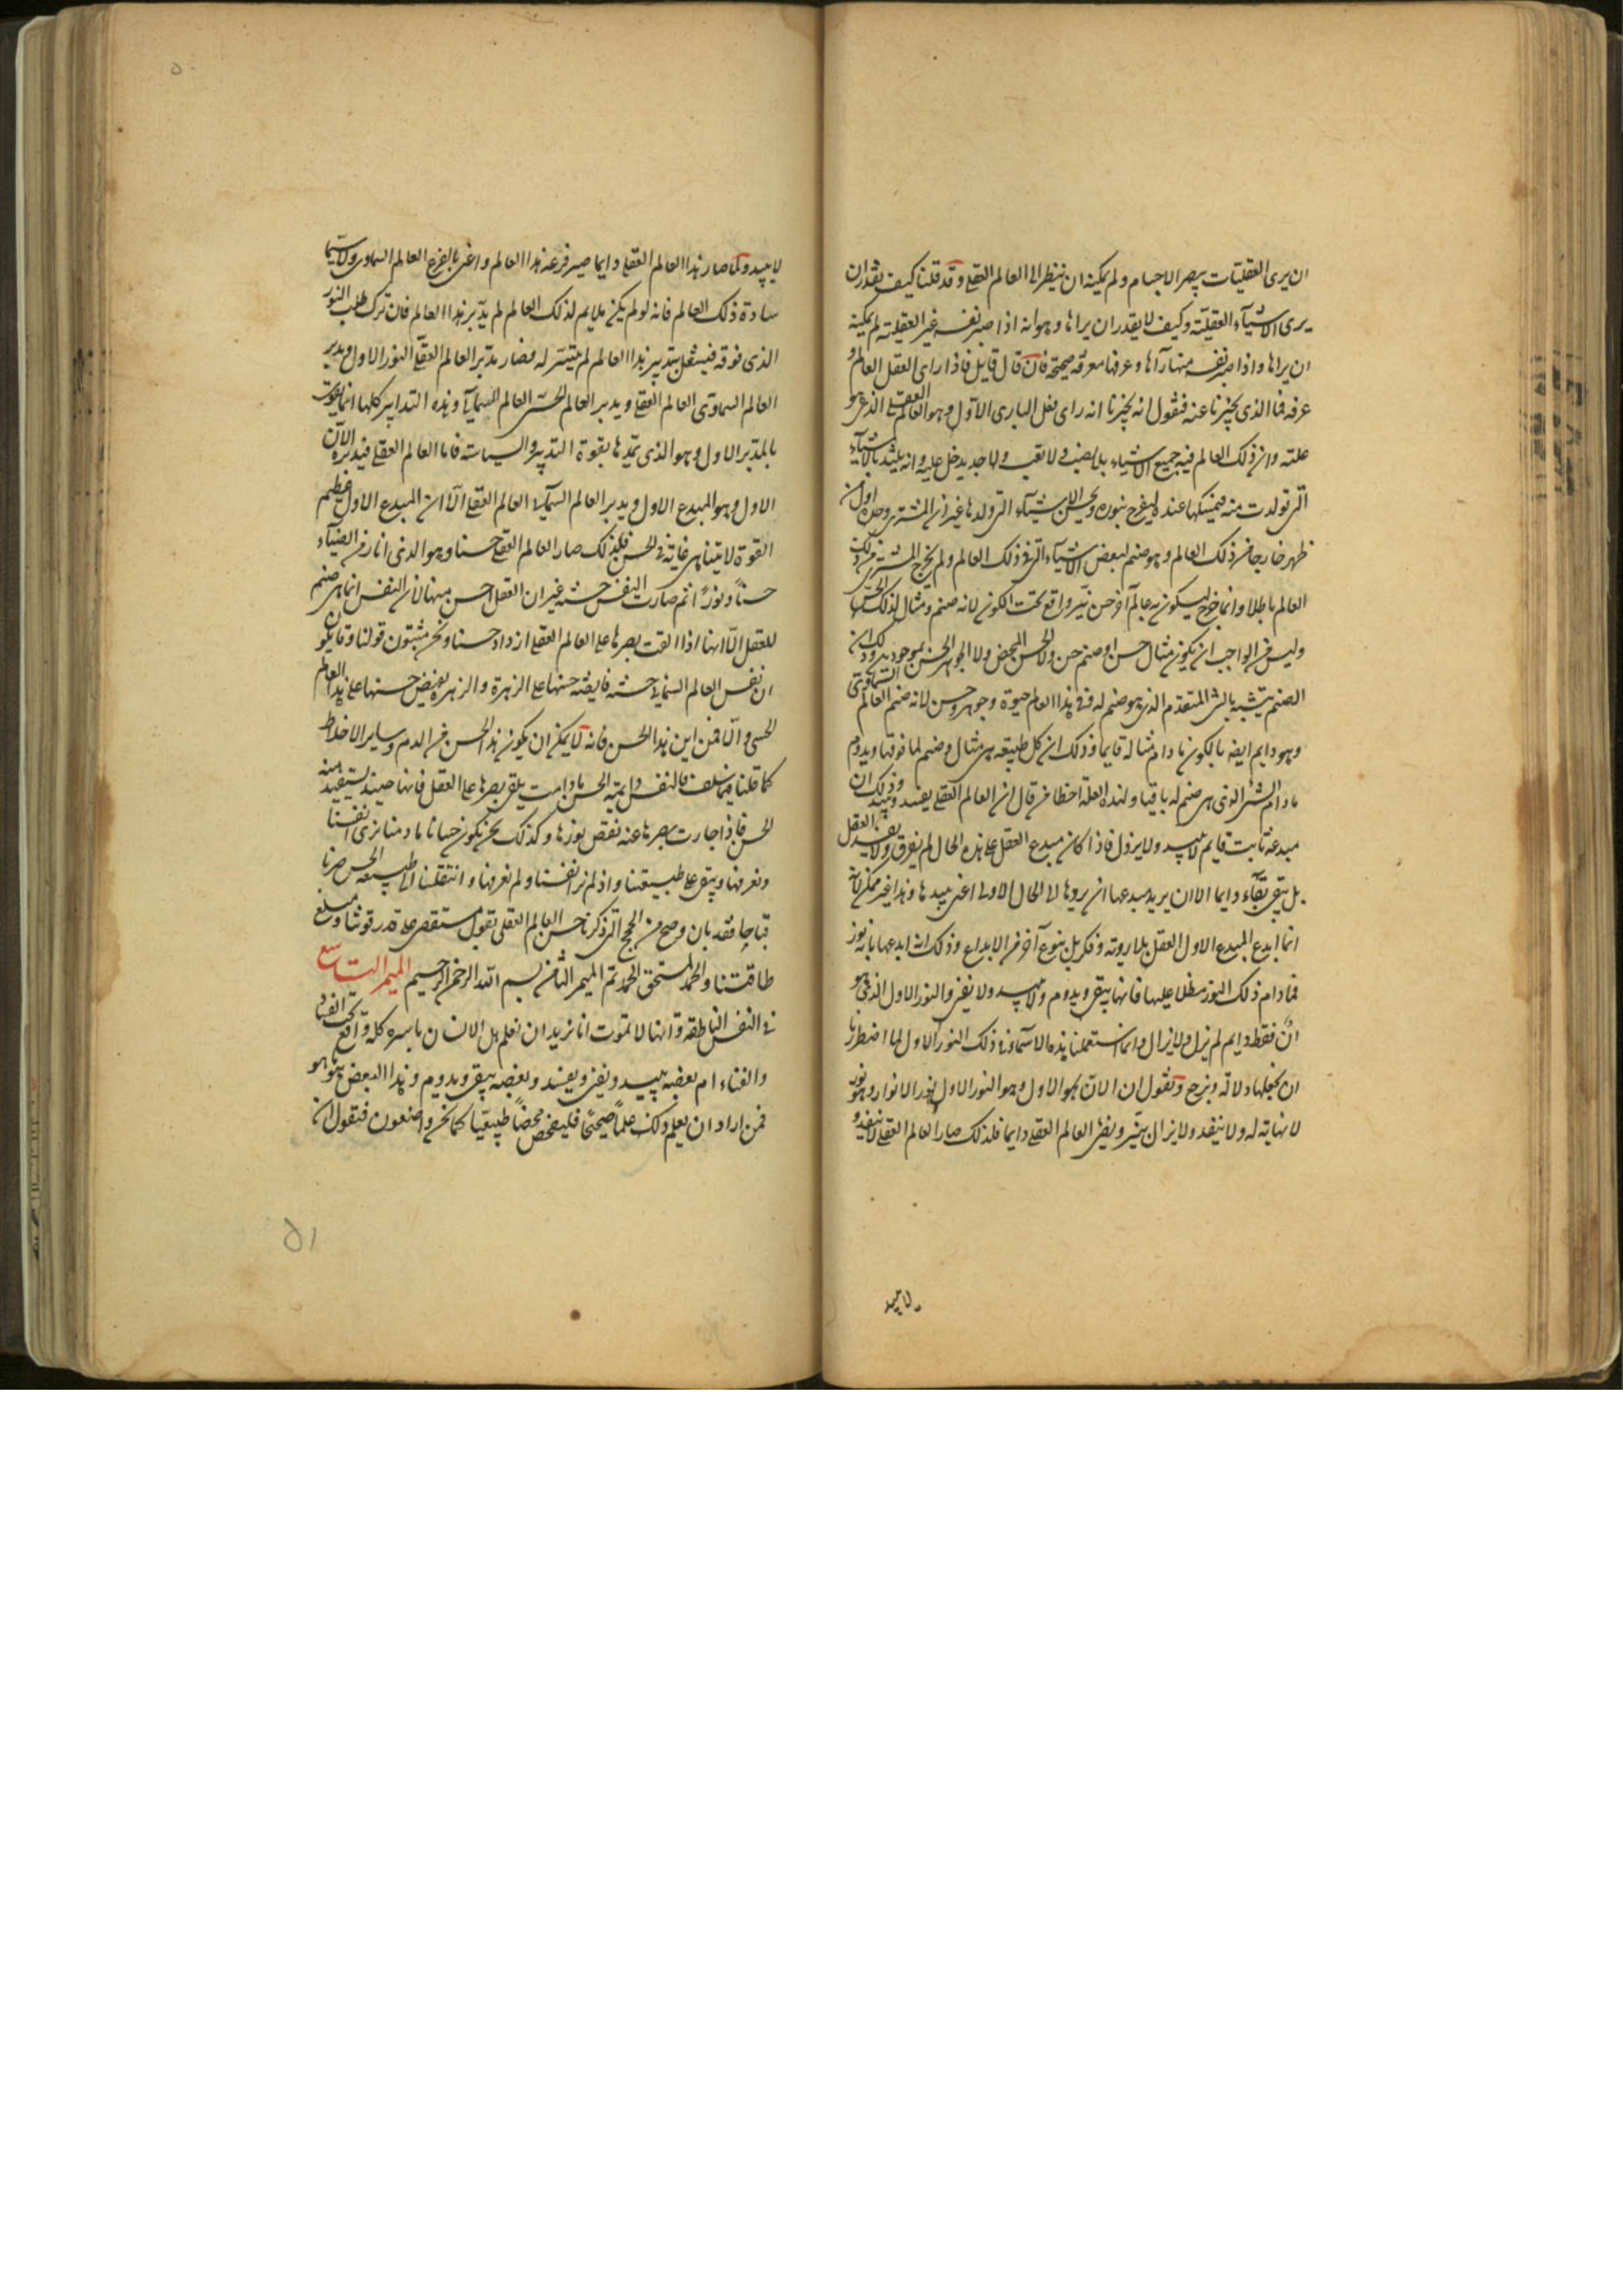 ان يرى العقليات ببصر الاجسام ولم يمكنه ان ينظر الى العالم العقلى وقد قلنا كيف يقدر ان
يرى الاشياء العقلية وكيف لا يقدر ان يراها وهو انه اذا صير نفسه غير العقلية لم يمكنه
ان يراها واذا صير نفسه منها رآها وعرفها معرفة صحيحة فان قال قايل فاذا راى العقل العالم و
عرفه فما الذى يخبرنا عنه فنقول انه يخبرنا انه راى فعل البارى الاول وهو العالم العقلى الذى هو
علته وان ذلك العالم فيه جميع الاشياء بلا نصب ولا تعب ولها جد يدخل عليه وانه يلتذ بالاشياء
التى تولدت منه فيمسكها عنده ليفرح بنوره وبحسن الاشياء التى ولدها غير ان المشترى وحده اول من
ظهر خارجا من ذلك العالم وهو صنم لبعض الاشياء التى فى ذلك العالم ولم يخرج المشترى من ذلك
العالم باطلا وانما خرج ليكون به عالم آخر حسن نير واقع تحت الكون لانه صنم ومثال لذلك الحسن
وليس من الواجب ان يكون مثال حسن او صنم حسن ولا الحسن المحض ولا الجوهر الحسن بموجودين وذلك ان
الصنم يتشبه بالشئ المتقدم الذى هو صنم له ففى هذا العالم حيوة وجوهر وحسن لانه صنم العالم السماوى
وهو دايم ايضه بالكون ما دام مثاله قايما وذلك ان كل طبيعة هى مثال وصنم لما فوقها ويدوم
ما دام الشئ الذى هى صنم له باقيا ولهذه العلة اخطا من قال ان العالم العقلى يفسد ويبيد وذلك ان
مبدعه ثابت قايم لا يبيد ولا يزول فاذا كان مبدع العقل على هذه الحال لم يفرق ولا يفسد العقل
بل يبقى بقاء دايما الا ان يريد مبدعها ان يردها الى الحال الاولى اعنى يبيدها وهذا غير ممكن لانه
انما ابدع المبدع الاول العقل بلا روية وفكر بل بنوع آخر من الابداع وذلك انه ابدعها بانه نور
فما دام ذلك النور مطلا عليها فانها يبقى ويدوم ولا يبيد ولا يفنى والنور الاول الذى هو
ان فقط دايم لم يزل ولا يزال وانما استعملنا هذه الاسماء فى ذلك النور الاول لما اضطررنا
ان نجعلها دلالة ونرجع ونقول ان الان هو الاول وهو النور الاول نور الانوار وهو نور
لا نهاية له ولا ينفد ولا يزال ينير ويضئ العالم العقلى دايما فلذلك صار العالم العقلى لا ينفد و
لا يبيد
لا يبيد ولما صار هذا العالم العقلى دايما صير فرعه هذا العالم واعنى بالفرع العالم السماوى ولا سيما
سادة ذلك العالم فانه لو لم يكن ملايم لذلك العالم لم يدبر هذا العالم فان ترك طلب النور
الذى فوقه فيشغل بتدبير هذا العالم لم يتيسر له فصار مدبر العالم العقلى النور الاول ومدبر
العالم السماوى العالم العقلى ويدبر العالم الحسى العالم السمائى وهذه التدابير كلها انما تقوى
بالمدبر الاول وهو الذى يمدها بقوة التدبير والسياسة فاما العالم العقلى فيدبره الان
الاول وهو المبدع الاول ويدبر العالم السمائى العالم العقلى الا ان المبدع الاول عظيم
القوة لا يتناهى غاية فى الحسن فلذلك صار العالم العقلى حسنا وهو الذى انار من الضياء
حسنا ونورا ثم صارت النفس حسنه غير ان العقل احسن منها لان النفس انما هى صنم
للعقل الا انها اذا القت بصرها على العالم العقلى ازداد حسنا ونحن مثبتون قولنا وقايلون
ان نفس العالم السمائى حسنه فايضه حسنها على الزهرة والزهرة يفيض حسنها على هذا العالم
الحسى والا فمن اين هذا الحسن فانه لا يمكن ان يكون هذا الحسن من الدم وساير الاخلاط
كما قلنا فيما سلف فالنفس دايمة الحسن ما دامت يلقى بصرها على العقل فانها حينئذ يستفيد منه
الحسن فاذا جازت ببصرها عنه نقص نورها وكذلك نحن نكون حسانا ما دمنا نرى انفسنا
ونعرفها ويبقى على طبيعتنا واذا لم نر انفسنا ولم نعرفها وانتقلنا الى طبيعة الحس صرنا
قباحا فقد بان وصح من الحجج التى ذكرنا حسن العالم العقلى بقول مستقصى على قدر قوتنا ومبلغ
طاقتنا والحمد لمستحق الحمد تم الميمر الثامن بسم الله الرحمن الرحيم الميمر التاسع
فى النفس الناطقة وانها لا تموت انا نريد ان نعلم هل الانسان باسره كله واقع تحت الفساد
والفناء ام بعضه يبيد ويفنى ويفسد وبعضه يبقى ويدوم وهذا البعض هو ما هو
فمن اراد ان يعلم ذلك علما صحيحا فليفحص فحصا طبيعيا كما نحن واصفون فنقول ان
٥١